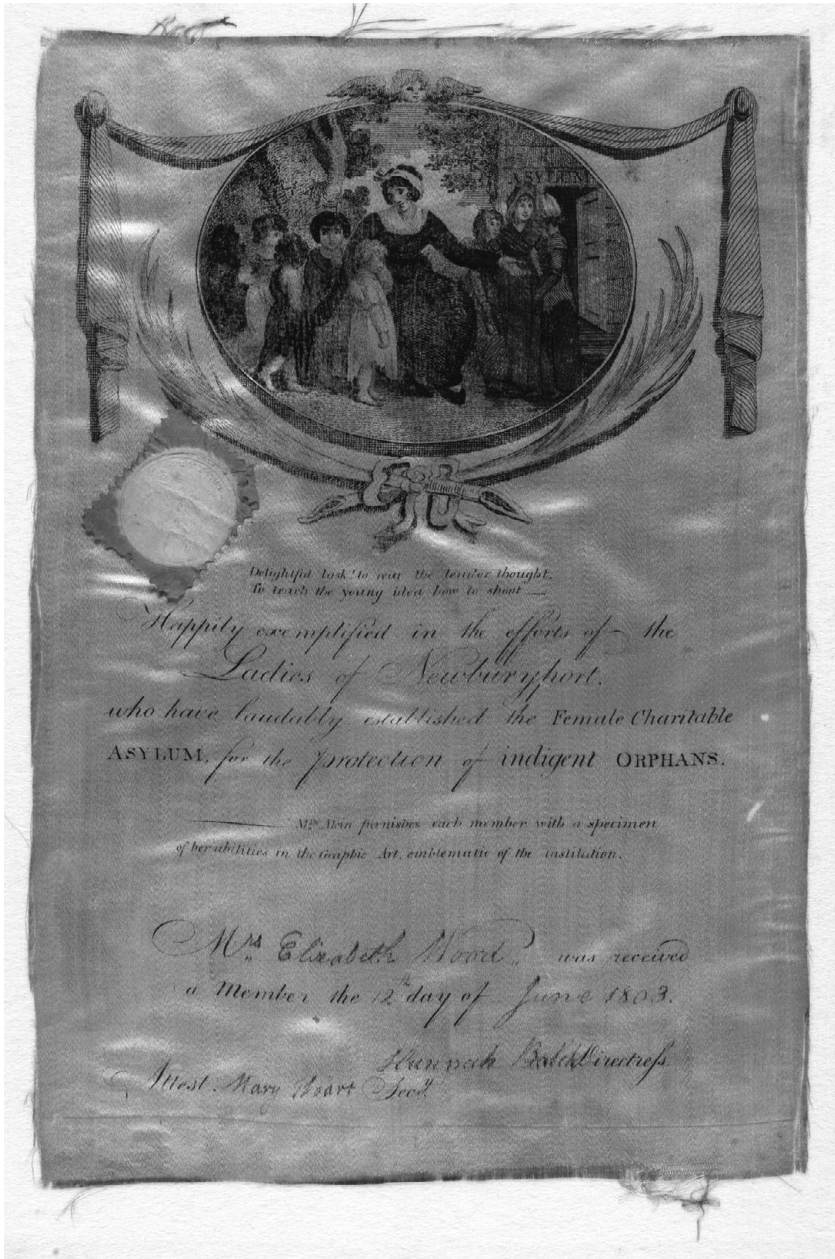 ASYLUM
Delightful task! to rear the tender thought,
To teach the young idea how to shoot —
Happily exemplified in the efforts of the
Ladies of Newburyport,
who have laudably established the Female Charitable
ASYLUM, for the protection of indigent ORPHANS.
Mrs. furnishes each member with a specimen
of her abilities in the Graphic Art, emblematic of the institution.
Mrs Elizabeth Wood, was received
a Member the 12th day of June 1803.
Hannah Balch Directress
Attest Mary Secy.